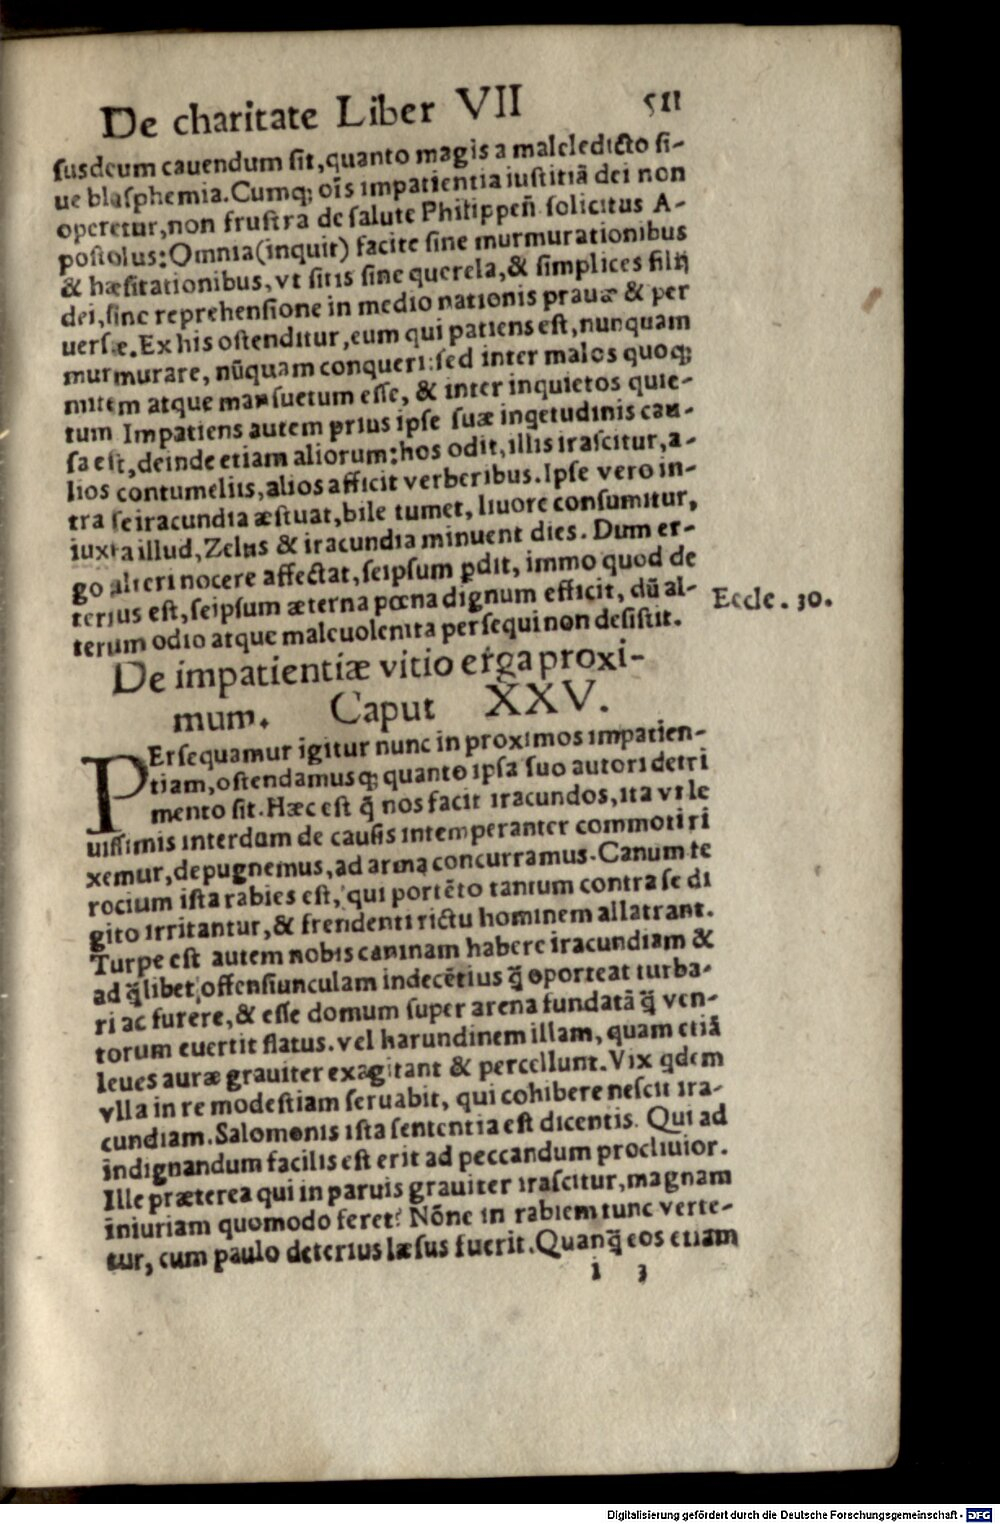 De charitate Liber VII 511
susdeum cauendum sit, quanto magis a maleledicto si-
ue blasphemia. Cumq; oĩs impatientia iustitiã dei non
operetur, non frustra de salute Philippeñ solicitus A-
postolus: Omnia (inquit) facite sine murmurationibus
& hæsitationibus, vt sitis sine querela, & simplices filij
dei, sine reprehensione in medio nationis prauæ & per
uersæ. Ex his ostenditur, eum qui patiens est, nunquam
murmurare, nũquam conqueri: sed inter malos quoq;
mitem atque mansuetum esse, & inter inquietos quie-
tum Impatiens autem prius ipse suæ inqetudinis cau-
sa est, deinde etiam aliorum: hos odit, illis irascitur, a-
lios contumeliis, alios afficit verberibus. Ipse vero in-
tra se iracundia æstuat, bile tumet, liuore consumitur,
iuxta illud, Zelus & iracundia minuent dies. Dum er-
go alteri nocere affectat, seipsum ꝑdit, immo quod de
terius est, seipsum æterna pœna dignum efficit, dũ al-
terum odio atque maleuolentia persequi non desistit.
Eccle. 30.
De impatientiæ vitio erga proxi-
mum. Caput XXV.
PErsequamur igitur nunc in proximos impatien-
tiam, ostendamusq; quanto ipsa suo autori detri
mento sit. Hæc est q̃ nos facit iracundos, ita vt le
uissimis interdum de causis intemperanter commoti ri
xemur, depugnemus, ad arma concurramus. Canum te
rocium ista rabies est, qui portẽto tantum contra se di
gito irritantur, & frendenti rictu hominem allatrant.
Turpe est autem nobis caninam habere iracundiam &
ad q̃libet offensiunculam indecẽtius q̃ oporteat turba-
ri ac furere, & esse domum super arena fundatã q̃ ven-
torum euertit flatus. vel harundinem illam, quam etiã
leues auræ grauiter exagitant & percellunt. Vix qdem
vlla in re modestiam seruabit, qui cohibere nescit ira-
cundiam. Salomonis ista sententia est dicentis. Qui ad
indignandum facilis est erit ad peccandum procliuior.
Ille præterea qui in paruis grauiter irascitur, magnam
iniuriam quomodo feret? Nõne in rabiem tunc verte-
tur, cum paulo deterius læsus fuerit. Quanq̃ eos etiam
i 3
Digitalisierung gefördert durch die Deutsche Forschungsgemeinschaft - DFG